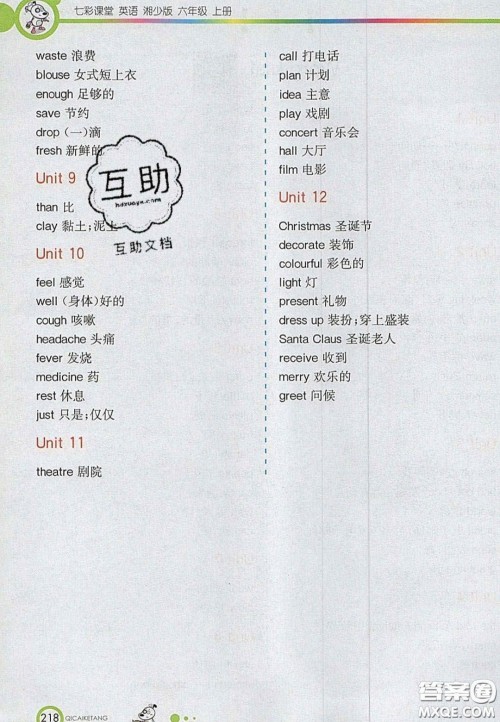 七彩课堂 英语 湘少版 六年级 上册
waste 浪费
blouse 女式短上衣
enough 足够的
save 节约
drop （一）滴
fresh 新鲜的
Unit 9
than 比
clay 黏土;泥土
Unit 10
feel 感觉
well （身体）好的
cough 咳嗽
headache 头痛
fever 发烧
medicine 药
rest 休息
just 只是;仅仅
Unit 11
theatre 剧院
call 打电话
plan 计划
idea 主意
play 戏剧
concert 音乐会
hall 大厅
film 电影
Unit 12
Christmas 圣诞节
decorate 装饰
colourful 彩色的
light 灯
present 礼物
dress up 装扮;穿上盛装
Santa Claus 圣诞老人
receive 收到
merry 欢乐的
greet 问候
互助
huzuowu.com
互助文档
218 QICAIKETANG
答案圈
MXQE.COM